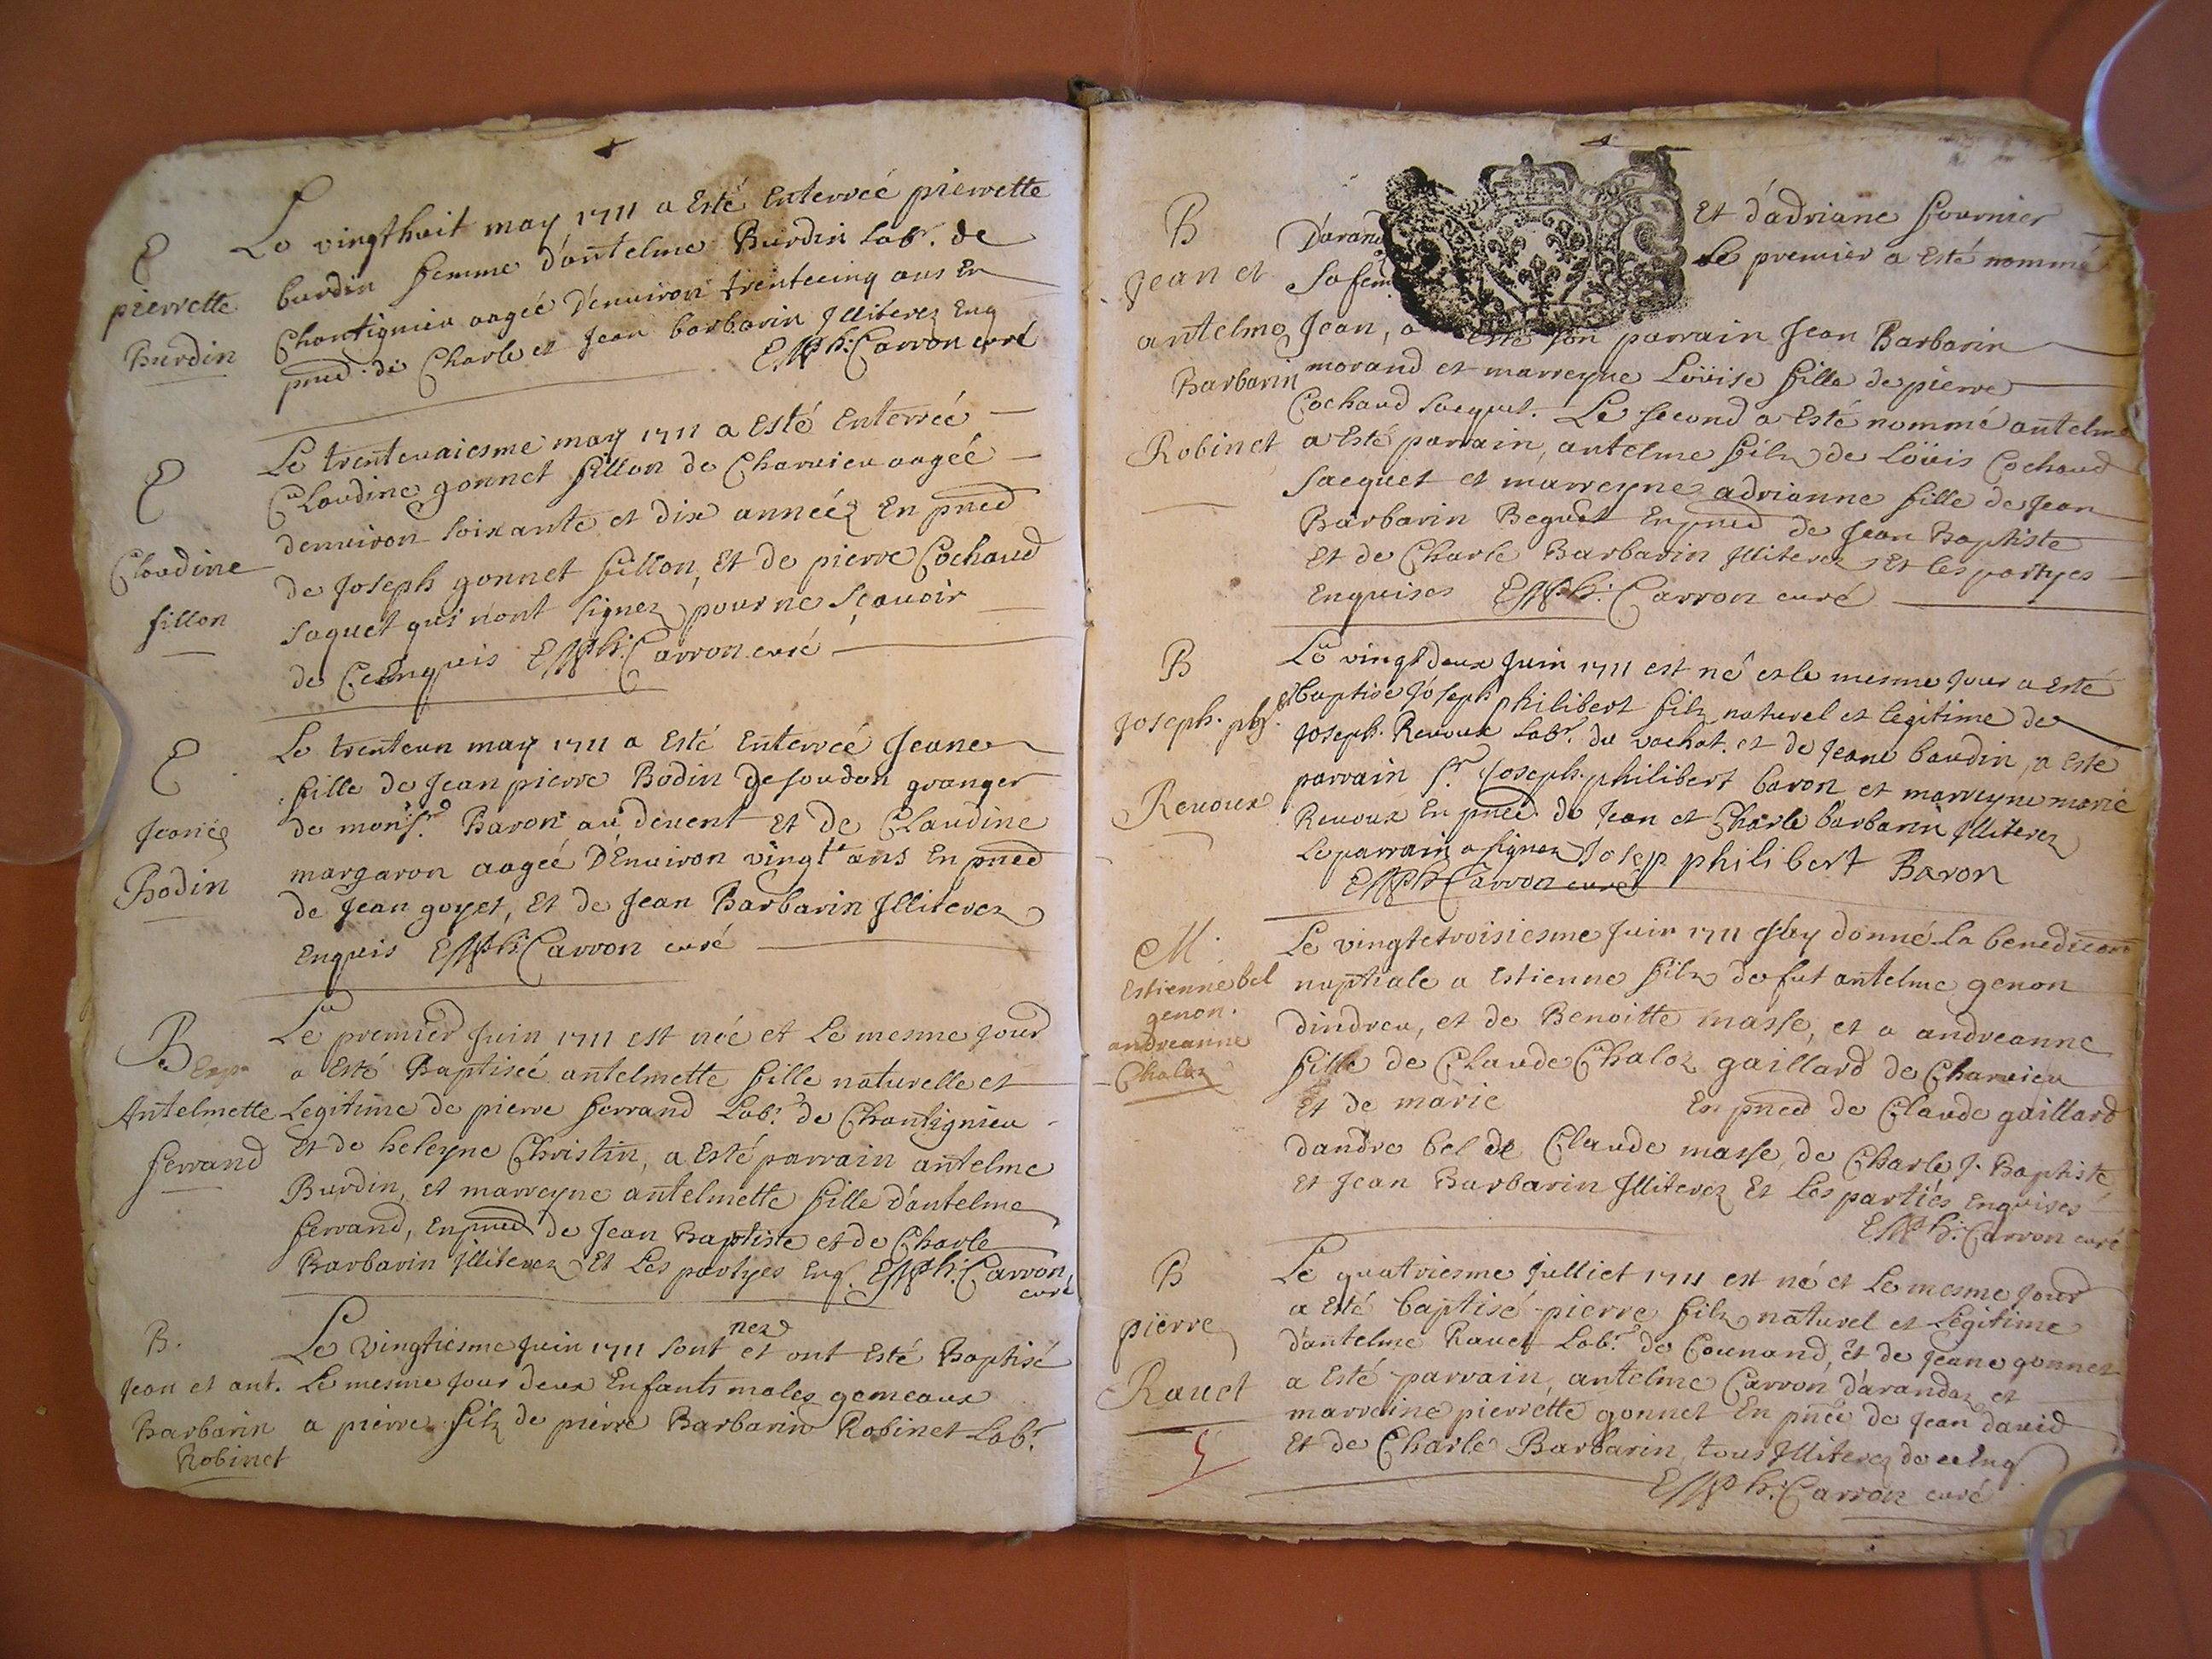 E
pierrette
Burdin
Le vingthuit may 1711 a Esté Enterreé pierrette
burdin femme d'antelme Burdin Labr. de
Chantignieu aageé D'enuiron trentecinq ans En
pnce. de Charle et Jean barbarin Illiterez Enq
Ph: Carron curé
E
Claudine
fillon
Le trentevaiesme may 1711 a Esté Enterreé
Claudine gonnet fillon de Charuieu aageé
denuiron soixante et dix anneéz En pnce
de Joseph gonnet fillon, Et de pierre Cochaud
saquet qui n'ont signez pour ne sçauoir
de Ce Enquis Ph: Carron curé
E
Jeane
Bodin
Le trenteun may 1711 a Esté Enterreé Jeane
fille de Jean pierre Bodin de soudon granger
de monsr. Baron au deuent Et de Claudine
margaron aageé D'Enuiron vingt ans En pnce
de Jean goyet, Et de Jean Barbarin Illiterez
Enquis Ph: Carron curé
B
Antelmette
ferrand
Le premier Juin 1711 est née et Le mesme Jour
a Esté Baptiseé antelmette fille naturelle et
Legitime de pierre ferrand Labr. de Chantignieu
Et de heleyne Christin, a Esté parrain antelme
Burdin, et marreyne antelmette fille d'antelme
ferrand, En pnce de Jean Baptiste et de Charle
Barbarin Illiterez Et Les partyes Enq. Ph: Carron,
curé
B.
Jean et ant.
Barbarin
Robinet
Le vingtiesme Juin 1711 sont nez et ont Esté Baptisé
Le mesme Jour deux Enfants males gemeaux
a pierre filz de pierre Barbarin Robinet Labr.
B
Jean et
antelme
Barbarin
Robinet
D'arand Et d'adriane fournier
sa fem Le premier a Esté nommé
Jean, a esté son parrain Jean Barbarin
morand et marreyne Loüise fille de pierre
Cochaud saquet. Le second a Esté nommé antelme
a Esté parrain, antelme filz de Loüis Cochaud
saequet et marreyne adrianne fille de Jean
Barbarin Beguet En pnce de Jean Baptiste
Et de Charle Barbarin Illiterez Et les partyes
Enquises Ph: Carron curé
B
Joseph. ph.
Reuoux
Le vingtdeux Juin 1711 est né et le mesme Jour a Esté
Baptisé Joseph philibert filz naturel et legitime de
Joseph. Reuoux Labr. du vachat. et de Jeane baudin, a Esté
parrain sr. Joseph. philibert baron et marreyne marie
Reuoux En pnce. de Jean et Charle barbarin Illiterez
Le parrain a signez Josep philibert Baron
Ph: Carron curé
M.
Estienne bel
genon.
andreanne
Chaloz
Le vingtetroisiesme Juin 1711 Jay donné la benediction
nuptiale a Estienne filz de fut antelme genon
dindrieu, et de Benoitte masse, et a andreanne
fille de Claude Chaloz gaillard de Charuieu
Et de marie En pnce de Claude gaillard
dandre bel de Claude masse, de Charle J. Baptiste
Et Jean Barbarin Illiterez Et Les partiés Enquises
Ph: Carron curé
B
pierre
Rauet
5
Le quatriesme Julliet 1711 est né et Le mesme Jour
a Esté baptisé pierre filz naturel et Legitime
d'antelme Rauet Labr. de Counand, et de Jeane gonnet
a Esté parrain, antelme Carron d'arandaz et
marreine pierrette gonnet En pnce de Jean david
Et de Charle Barbarin, tous Illiterez de ce Enq
Ph: Carron curé